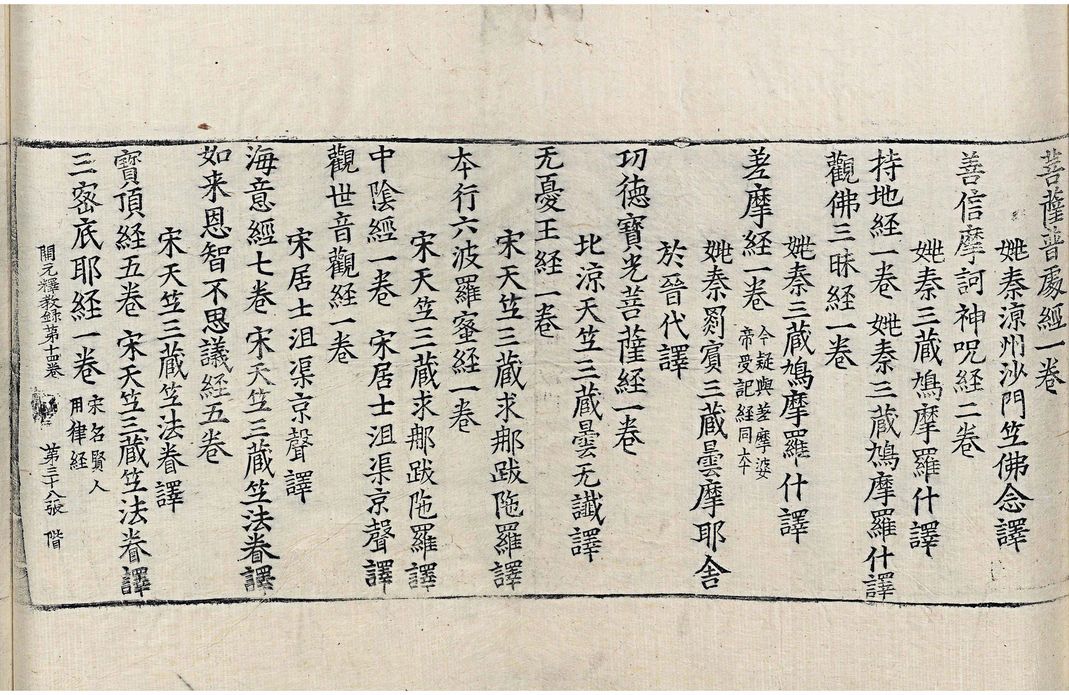 菩薩普處經一卷
姚秦涼州沙門竺佛念譯
善信摩訶神呪経二卷
姚秦三藏鳩摩羅什譯
持地経一卷 姚秦三藏鳩摩羅什譯
觀佛三昧經一卷
姚秦三藏鳩摩羅什譯
差摩経一卷 今疑與差摩婆
帝受記経同本
姚秦罽賓三藏曇摩耶舍
於晉代譯
功德寶光菩薩経一卷
北涼天竺三藏曇无讖譯
无憂王経一卷
宋天竺三藏求那跋陁羅譯
夲行六波羅蜜経一卷
宋天竺三藏求那跋陁羅譯
中陰經一卷 宋居士沮渠京聲譯
觀世音觀經一卷
宋居士沮渠京聲譯
海意經七卷 宋天竺三藏竺法眷譯
如来恩智不思議経五卷
宋天竺三藏竺法眷譯
寶頂経五卷 宋天竺三藏竺法眷譯
三密底耶経一卷 宋名賢人
用律経
開元釋教錄第十四卷 第三十八張 階